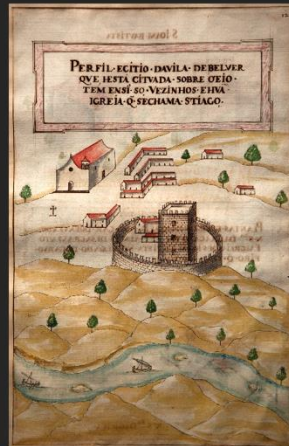 PERFIL·ECITIO·DAVILA·DE BELVER
QVE IESTA CITVADA·SOBRE OTEIO·
TEM ENSI·50·VEZINHOS·EHVA
IGREIA·Q̃·SECHAMA·STIAGO·